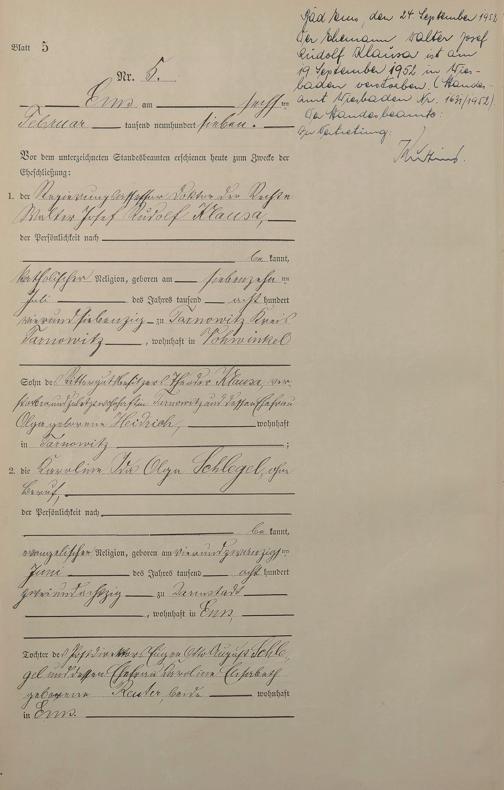 Bad Ems, den 24. September 1952
Der Ehemann Walter Josef
Rudolf Klausa ist am
19. September 1952 in Wies-
baden verstorben. (Standes-
amt Wiesbaden Nr. 1631/1952).
Der Standesbeamte:
In Vertretung.
Blatt 5
Nr. 5.
Ems am sechsten
Februar tausend neunhundert sieben.
Vor dem unterzeichneten Standesbeamten erschienen heute zum Zwecke der
Eheschließung:
1. der Regierungsassessor Doktor der Rechte
Walter Josef Rudolf Klausa,
der Persönlichkeit nach
be kannt,
katholischer Religion, geboren am siebenzehnten
Juli des Jahres tausend acht hundert
vierundsiebenzig zu Tarnowitz Kreis
Tarnowitz, wohnhaft in Vohwinkel
Sohn des Rittergutsbesitzers Theodor Klausa, ver-
storben und zuletzt wohnhaft in Tarnowitz und dessen Ehefrau
Olga geborene Heidrich, wohnhaft
in Tarnowitz;
2. die Karoline Ida Olga Schlegel, ohne
Beruf,
der Persönlichkeit nach
be kannt,
evangelischer Religion, geboren am vierundzwanzigsten
Juni des Jahres tausend acht hundert
zweiundachtzig zu Darmstadt
, wohnhaft in Ems,
Tochter des Postdirektors Eugen Otto August Schle-
gel und dessen Ehefrau Karoline Elisabeth
geborene Reuter, beide wohnhaft
in Ems.